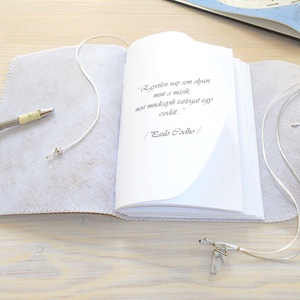 "Egyetlen nap sem olyan,
mint a másik,
mert mindegyik tartogat egy
csodát..."
/Paulo Coelho/